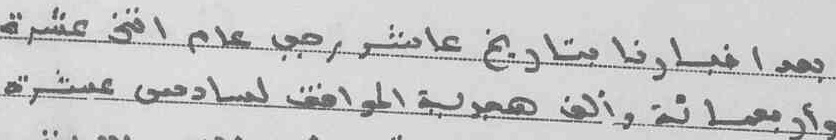 بعد اخبارنا بتاريخ عاشر رجب عام اثنى عشرة
وأربعمائة وألف هجرية الموافق لسادس عشرة